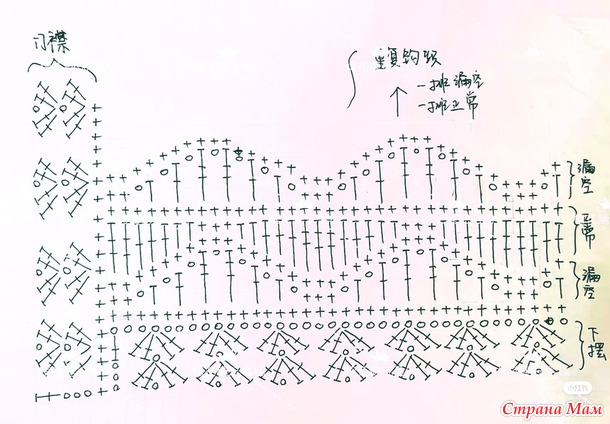 门襟
重复钩织
一排漏空
一排正常
漏空
正常
漏空
下摆
小红书
Страна Мам